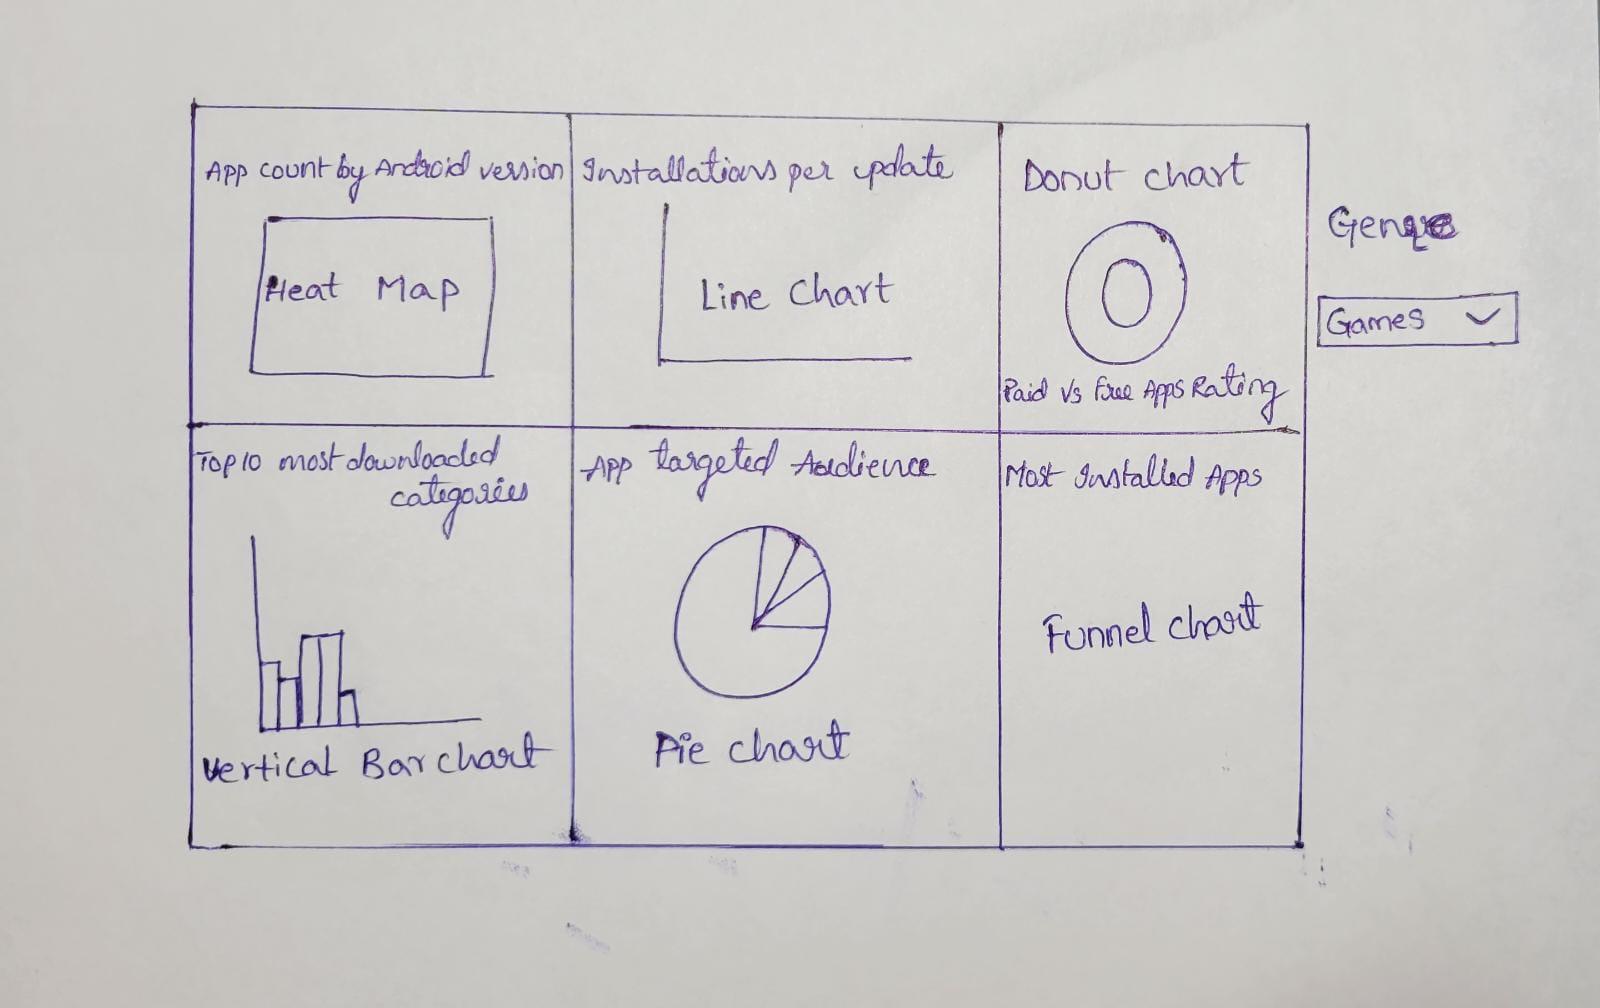 App count by Android version
Heat Map
Installations per update
Line Chart
Donut chart
Paid Vs Free Apps Rating
Genre
Games
Top 10 most downloaded
categories
Vertical Bar chart
App targeted Audience
Pie chart
Most Installed Apps
Funnel chart